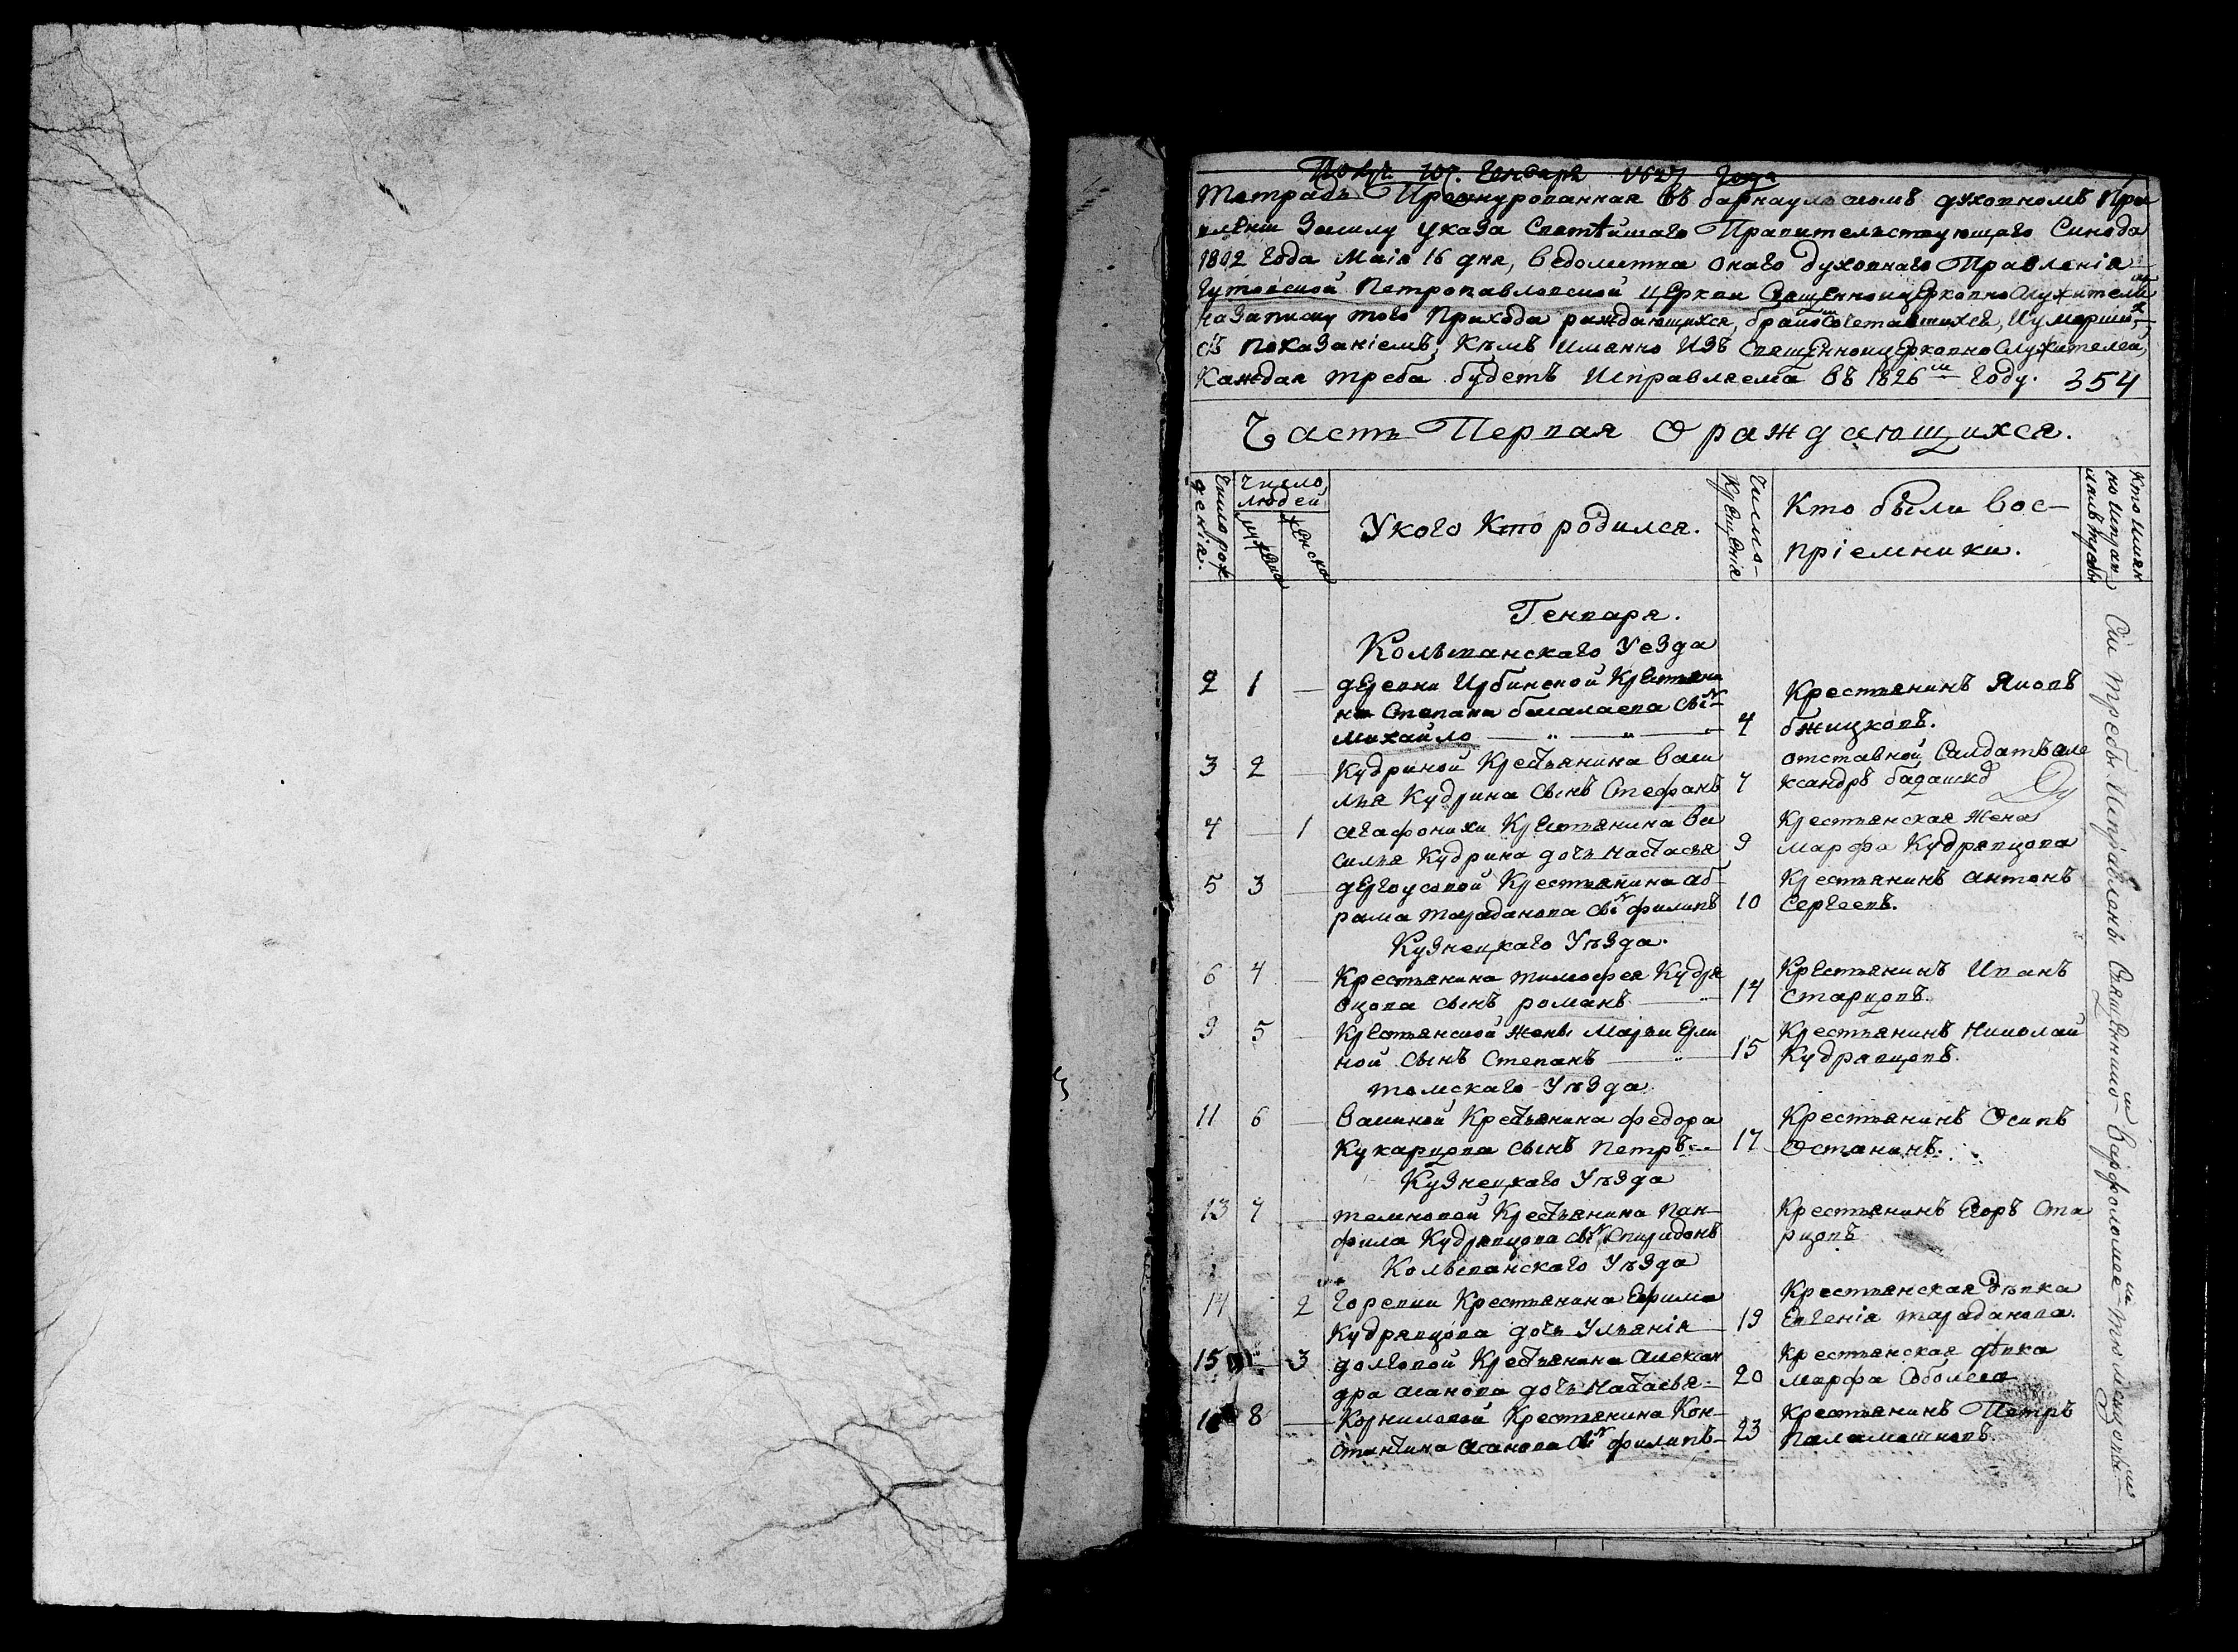 Получ. 10г. Генваря 1827 Года
Тетрадь Прошнурованная въ барнаульскомъ духовномъ Пра
вленіи Всилу указа Святѣйшаго Правительствующаго Синода
1802 года Маія 16 дня, ведомства онаго духовнаго Правленія
Гутовской Петропавловской церкви Священноцерковнослужителями
назаписку того Прихода раждающихся, бракосочетавшихся, Иумершихъ,
съ показаніемъ, Кѣмъ именно Изъ Священноцерковнослужителей,
Каждая треба будетъ исправляема въ 1826м году. 354
Часть Первая О раждающихся.
Число рож
денія.
Число
людей
мужеска
женска
Укого Кто родился.
Число
Крещенія
Кто были Вос-
пріемники.
Кто Имян
но Исправ
лялъ требы
Генваря.
Колыванскаго Уезда
2 1 — деревни Ирбинской Крестьяни
на Степана
Михайло — „ — „ — 4
Крестьянинъ Яковъ
3 2 — Кудриной Крестьянина Васи
лья Кудрина сынъ Стефанъ 7
отставной Салдатъ але
ксандръ
4 — 1 агафонихи Крестьянина Ва
силья Кудрина дочь Настасья 9
Крестьянская Жена
марфа Кудрявцова
5 3 — дергоусовой Крестьянина аб-
рама тараданова сынъ филипъ 10
Крестьянинъ антонъ
Сергеевъ.
Кузнецкаго Уѣзда.
6 4 — Крестьянина тимофея Кудря
вцова сынъ романъ — 14
Крестьянинъ Иванъ
Старцовъ.
9 5 — Крестьянской Жены Марьи
ной Сынъ Степанъ — 15
Крестьянинъ Николай
Кудрявцовъ.
томскаго Уѣзда
11 6 — Крестьянина федора
Кухарцова сынъ Петръ — 17
Крестьянинъ Осипъ
Останинъ.
Кузнецкаго Уѣзда
13 7 — темновой Крестьянина Пан-
фила Кудрявцова сынъ Спиридонъ
Крестьянинъ Егоръ Ста
рцовъ
Колыванскаго Уѣзда
14 2 горевки Крестьянина Ефима
Кудрявцова дочь Ульянія — 19
Крестьянская дѣвка
Евгенія тараданова.
15 — 3 долговой Крестьянина Алексан
дра асанова дочь Настасья — 20
Крестьянская дѣвка
марфа
8 — Корниловой Крестьянина Кон-
стантина асанова сынъ филипъ — 23
Крестьянинъ Петръ
Паламошновъ.
Сіи требы Исправлены Священникомъ Варфоломеемъ